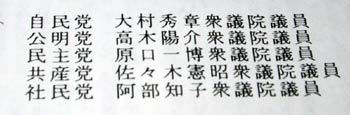 自民党　大村秀章衆議院議員
公明党　高木陽介衆議院議員
民主党　原口一博衆議院議員
共産党　佐々木憲昭衆議院議員
社民党　阿部知子衆議院議員